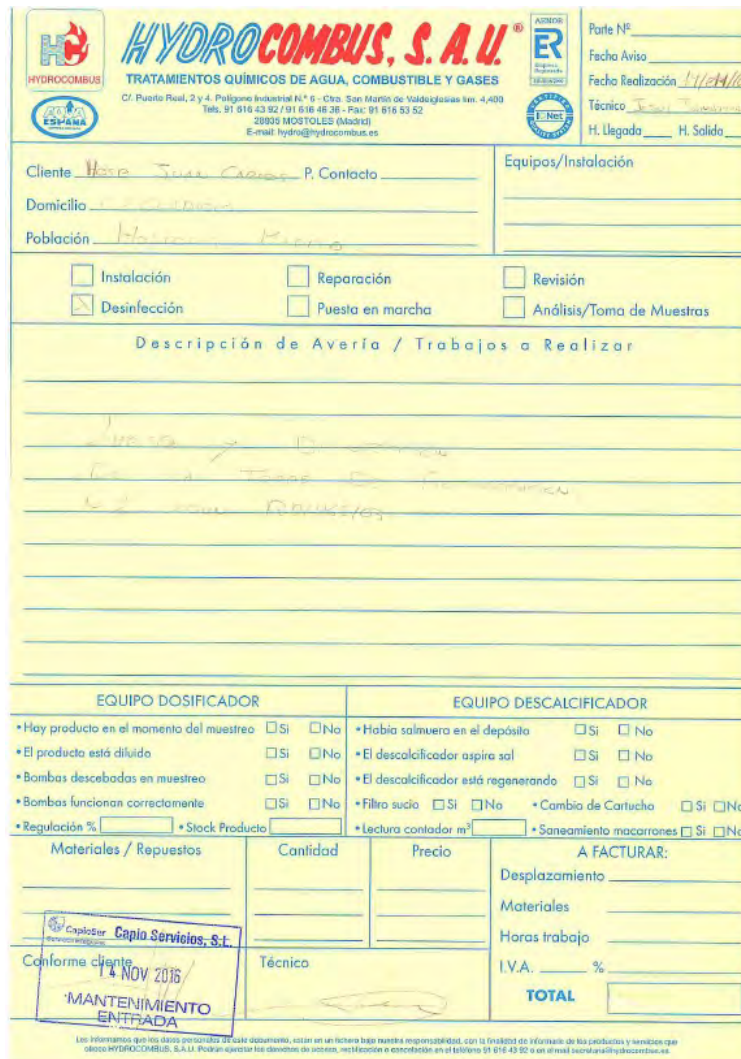 HYDROCOMBUS
HYDROCOMBUS, S. A. U.®
TRATAMIENTOS QUÍMICOS DE AGUA, COMBUSTIBLE Y GASES
C/. Puerto Real, 2 y 4. Polígono Industrial N.º 6 - Ctra. San Martín de Valdeiglesias km. 4,400
Tels. 91 616 43 92 / 91 616 48 36 - Fax: 91 616 53 52
28935 MOSTOLES (Madrid)
E-mail: hydro@hydrocombus.es
ESPAÑA
AENOR
ER
Empresa
Registrada
IQNet
Parte Nº
Fecha Aviso
Fecha Realización
Técnico
H. Llegada H. Salida
Cliente Hosp Juan Carlos P. Contacto
Domicilio
Población
Equipos/Instalación
Instalación Reparación Revisión
Desinfección Puesta en marcha Análisis/Toma de Muestras
Descripción de Avería / Trabajos a Realizar
EQUIPO DOSIFICADOR
• Hay producto en el momento del muestreo Si No
• El producto está diluido Si No
• Bombas descebadas en muestreo Si No
• Bombas funcionan correctamente Si No
• Regulación % • Stock Producto
EQUIPO DESCALCIFICADOR
• Había salmuera en el depósito Si No
• El descalcificador aspira sal Si No
• El descalcificador está regenerando Si No
• Filtro sucio Si No • Cambio de Cartucho Si No
• Lectura contador m³ • Saneamiento macarrones Si No
Materiales / Repuestos Cantidad Precio
A FACTURAR:
Desplazamiento
Materiales
Horas trabajo
I.V.A. %
TOTAL
Conforme cliente Técnico
CapioSer Capio Servicios, S.L.
14 NOV 2016
MANTENIMIENTO
ENTRADA
Les informamos que los datos personales de este documento, están en un fichero bajo nuestra responsabilidad, con la finalidad de informarle de los productos y servicios que
ofrece HYDROCOMBUS, S.A.U. Podrán ejercitar los derechos de acceso, rectificación o cancelación en el teléfono 91 616 43 92 o en el mail